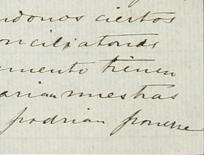 ndonos ciertos
onciliatorias
amento tienen
arian nuestras
podrian ponerse